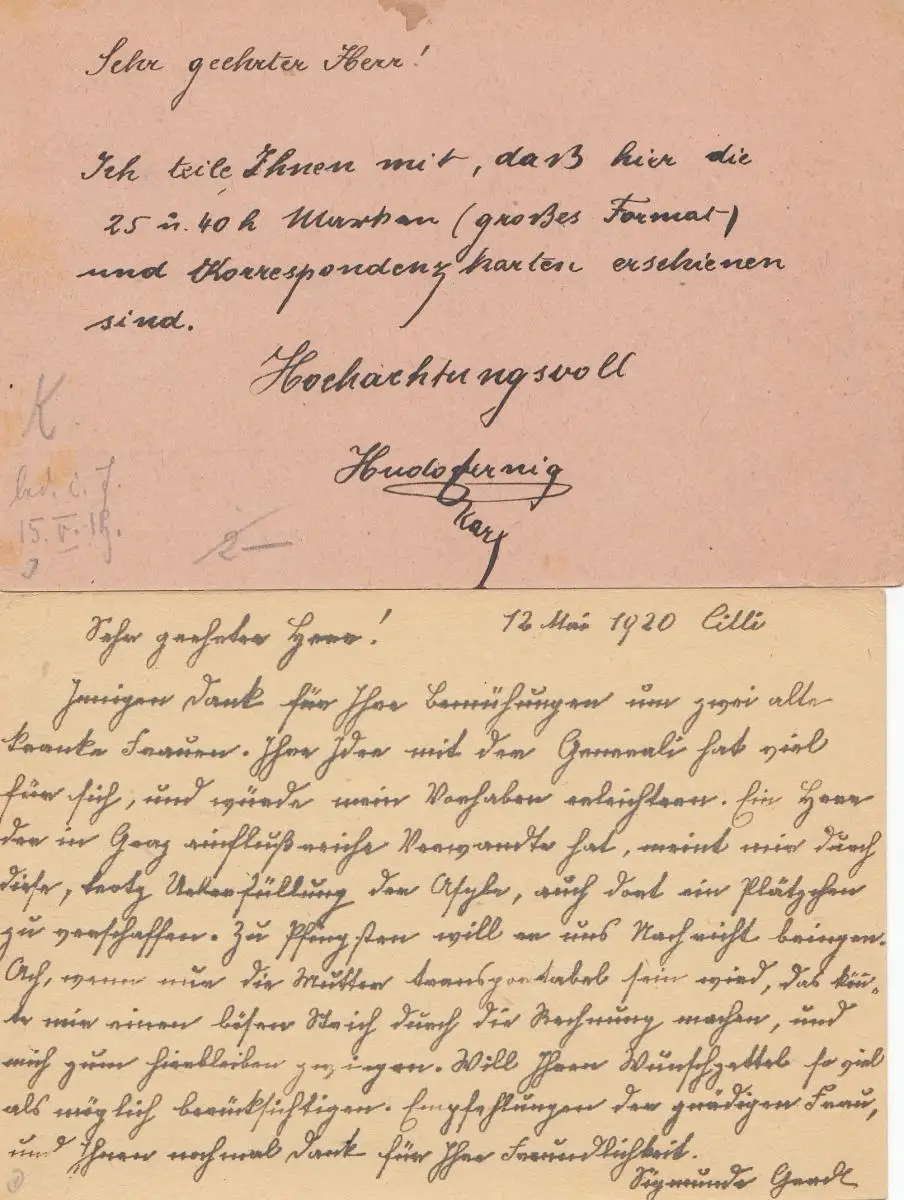 Sehr geehrter Herr!
Ich teile Ihnen mit, daß hier die
25 u. 40 h Marken (großes Format)
und Korrespondenzkarten erschienen
sind.
Hochachtungsvoll
Karl
K.
15. V. 19.
2—
Sehr geehrter Herr! 12 Mai 1920 Cilli
Innigen Dank für Ihre Bemühungen um zwei alte
kranke Frauen. Ihre Idee mit der Generali hat viel
für sich, und würde mein Vorhaben erleichtern. Ein Herr
der in Graz einflußreiche Verwandte hat, meint mir durch
diese, trotz Ueberfüllung der Asyle, auch dort ein Plätzchen
zu verschaffen. Zu Pfingsten will er uns Nachricht bringen.
Ach, wenn nur die Mutter transportabel sein wird, das könn-
te mir einen bösen Strich durch die Rechnung machen, und
mich zum hierbleiben zwingen. Will Ihren Wunschzettel so viel
als möglich berücksichtigen. Empfehlungen der gnädigen Frau,
und Ihnen nochmal Dank für Ihre Freundlichkeit.